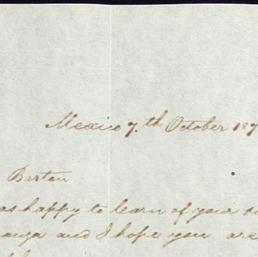 Mexico 7th October 187
Barton
as happy to learn of your
and I hope you are